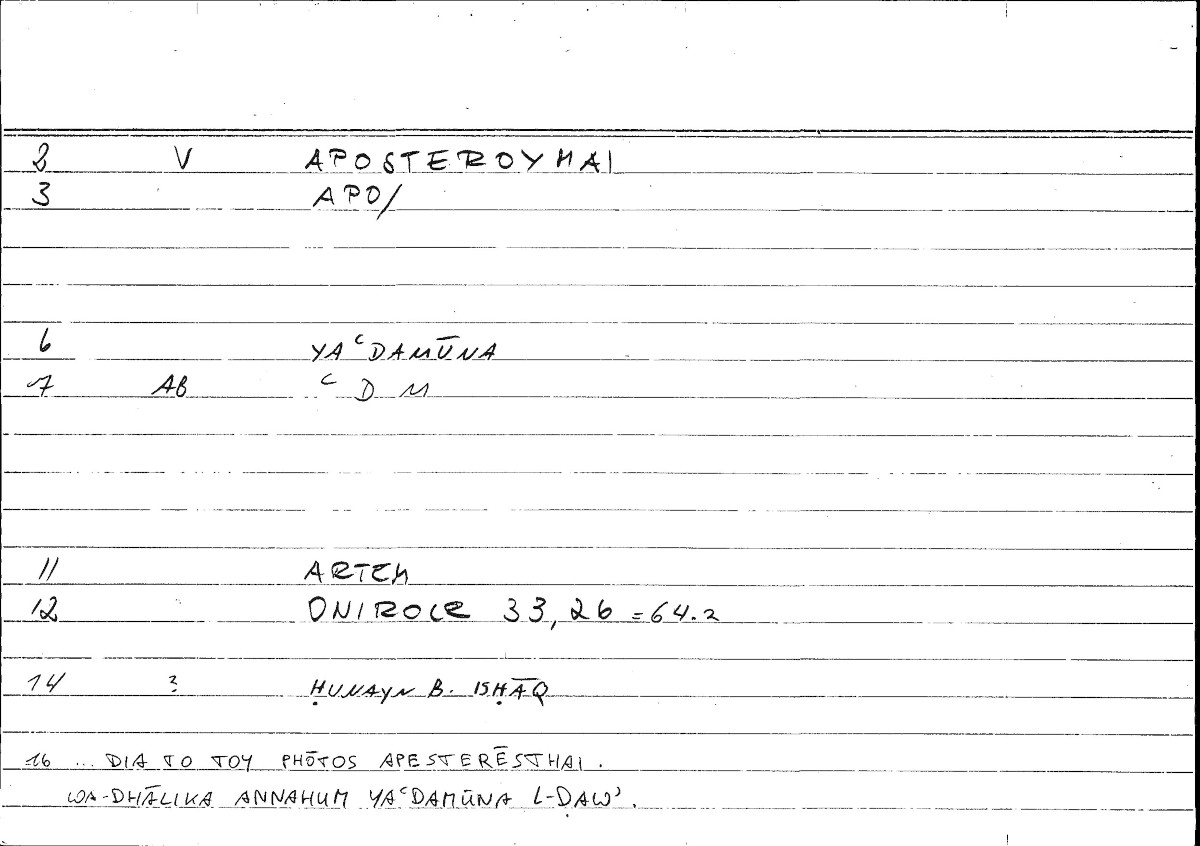 2 V APOSTEROYMAI
3 APO/
6 YAʿDAMŪNA
7 AB ʿ D M
11 ARTEM
12 ONIROCR 33, 26 = 64.2
14 ? ḤUNAYN B. ISḤĀQ
16 ... DIA TO TOY PHŌTOS APESTERĒSTHAI.
WA-DHĀLIKA ANNAHUM YAʿDAMŪNA L-ḌAWʾ.